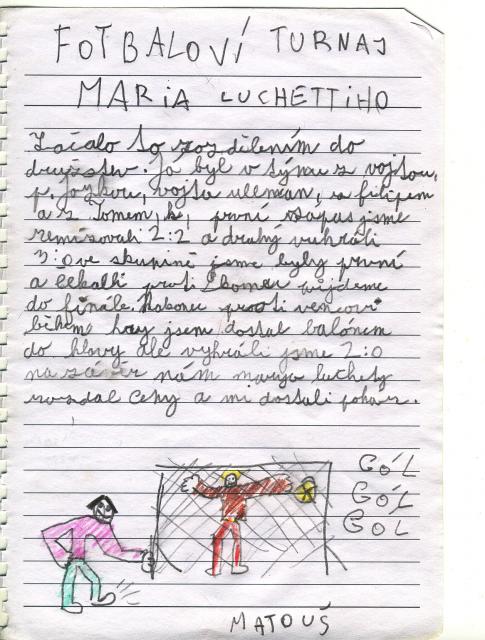 FOTBALOVÍ TURNAJ
MARiA LUCHETTIHO
Začalo to rozdělením do
družstev. Já byl v týmu z vojtou,
p. vojta uleman, a filipem
a z Tomem, k, první zapas jsme
remizovali 2:2 a druhý vuhráli
3:0 ve skupině jsme byly první
a čekalli proti půjdeme
do finále. Nakonec proti
během hry jsem dostal balónem
do hlavy ale vyhráli jsme 2:0
na závěr nám maryo luchety
rozdal ceny a mi dostali pohar.
GÓL
GÓL
GOL
MATOUŠ